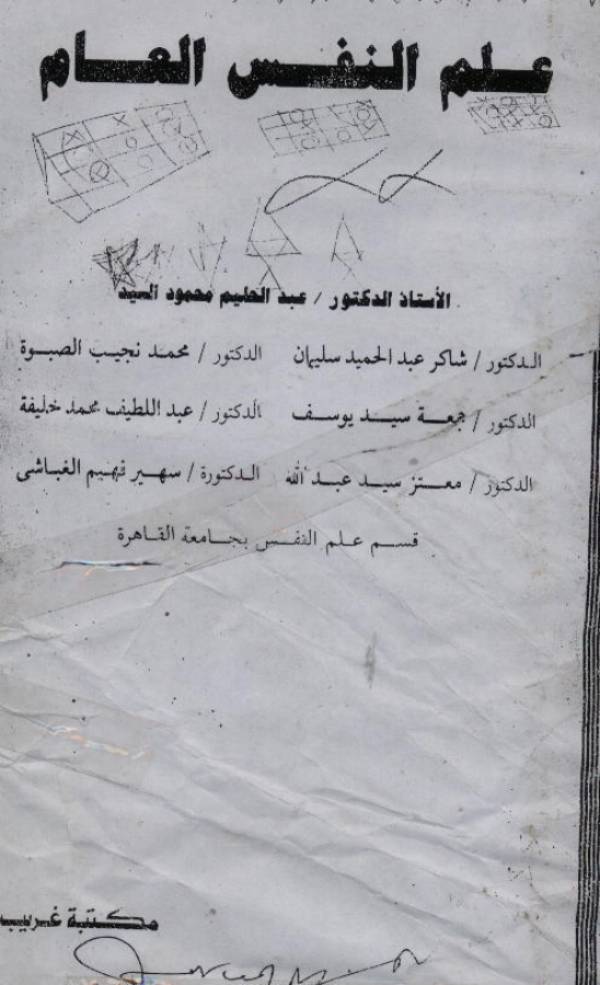 علم النفس العام
الأستاذ الدكتور / عبد الحليم محمود السيد
الدكتور / شاكر عبد الحميد سليمان الدكتور / محمد نجيب الصبوة
الدكتور / جمعة سيد يوسف الدكتور / عبد اللطيف محمد خليفة
الدكتور / معتز سيد عبد الله الدكتورة / سهير فهيم الغباشى
قسم علم النفس بجامعة القاهرة
مكتبة غريب